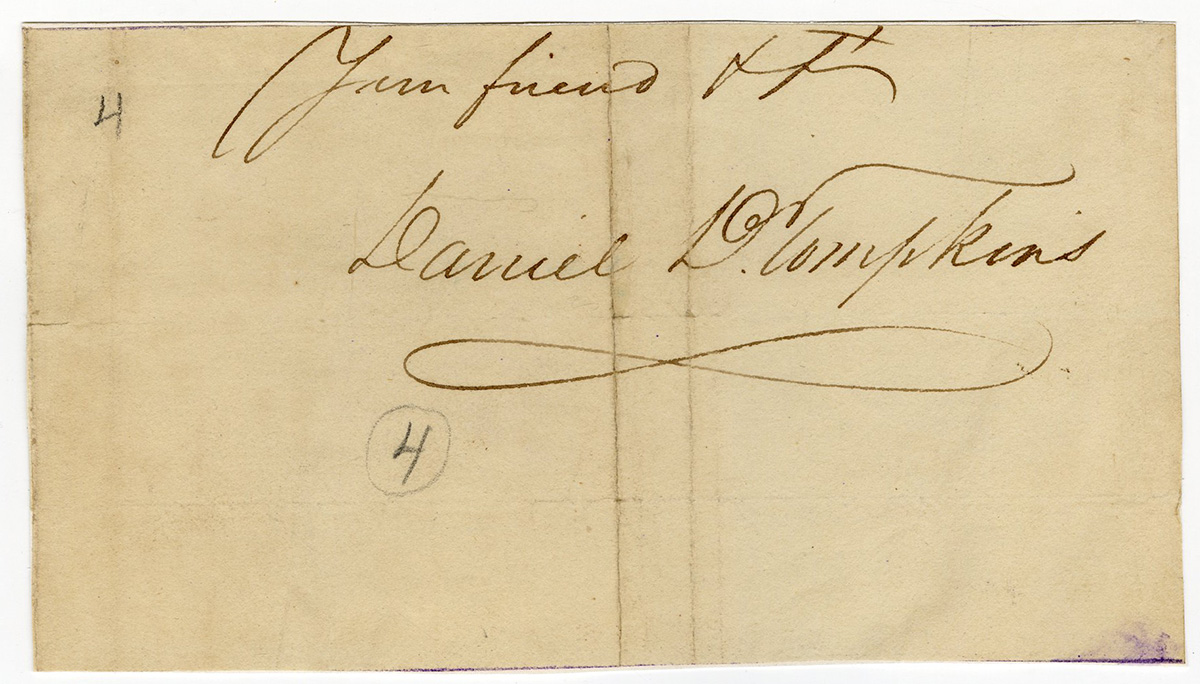 Your friend &
4
Daniel D. Tompkins
4